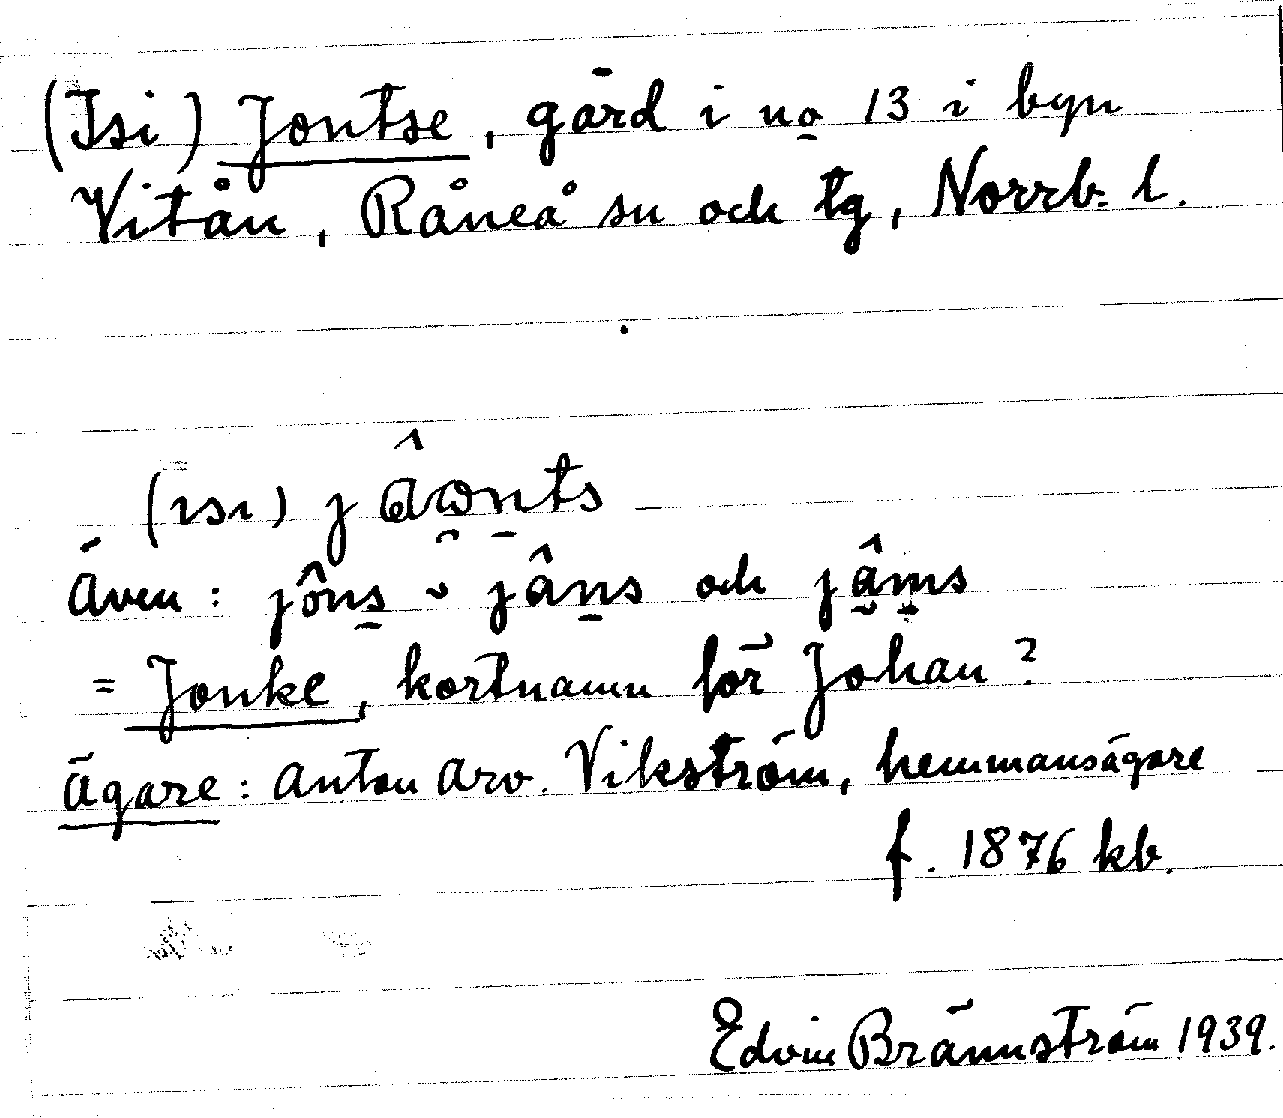 (Isi) Jontse, gård i no 13 i byn
Vitån, Råneå sn och tg, Norrb. l.
(ısı)
Även: jôns och jâms
= Jonke, kortnamn för Johan?
Ägare: Anton Arv. Vikström, hemmansägare
f. 1876 kb.
Edvin Brännström 1939.